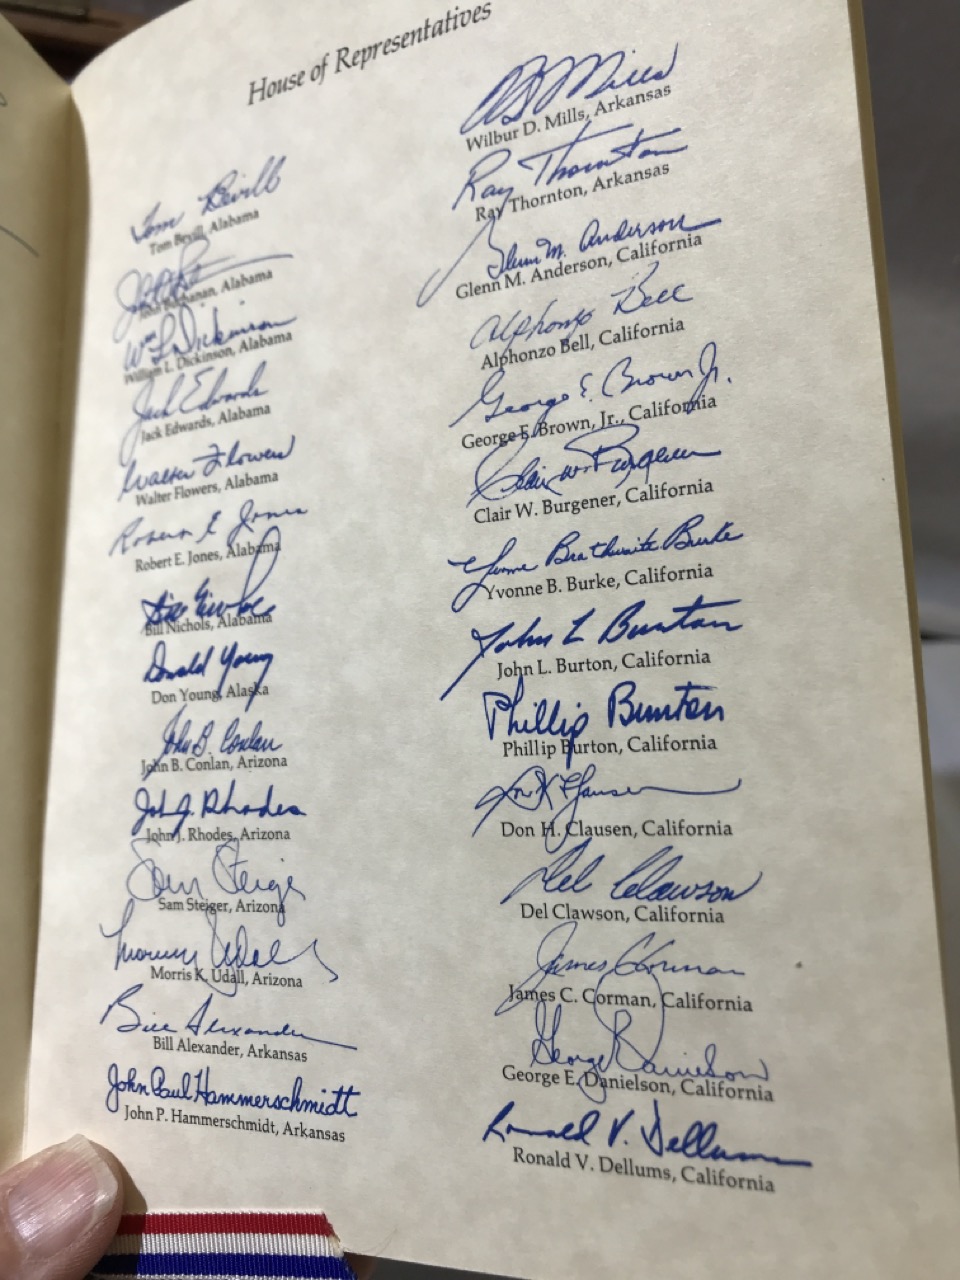 House of Representatives
Tom Bevill
Tom Bevill, Alabama
John Buchanan, Alabama
Wm L Dickinson
William L. Dickinson, Alabama
Jack Edwards
Jack Edwards, Alabama
Walter Flowers
Walter Flowers, Alabama
Robert E. Jones
Robert E. Jones, Alabama
Bill Nichols
Bill Nichols, Alabama
Donald Young
Don Young, Alaska
John B. Conlan
John B. Conlan, Arizona
John J. Rhodes
John J. Rhodes, Arizona
Sam Steiger
Sam Steiger, Arizona
Morris Udall
Morris K. Udall, Arizona
Bill Alexander
Bill Alexander, Arkansas
John Paul Hammerschmidt
John P. Hammerschmidt, Arkansas
WD Mills
Wilbur D. Mills, Arkansas
Ray Thornton
Ray Thornton, Arkansas
Glenn M. Anderson
Glenn M. Anderson, California
Alphonzo Bell
Alphonzo Bell, California
George E. Brown Jr.
George E. Brown, Jr., California
Clair W. Burgener
Clair W. Burgener, California
Yvonne Brathwaite Burke
Yvonne B. Burke, California
John L Burton
John L. Burton, California
Phillip Burton
Phillip Burton, California
Don H Clausen
Don H. Clausen, California
Del Clawson
Del Clawson, California
James Corman
James C. Corman, California
George Danielson
George E. Danielson, California
Ronald V. Dellums
Ronald V. Dellums, California